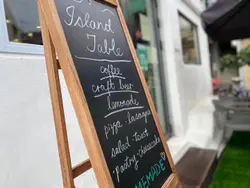 Island
Table
coffee
craft beer
lemonade
pizza · lasagna
salad · toast
· Pastry · cheesecake
HOMEMADE